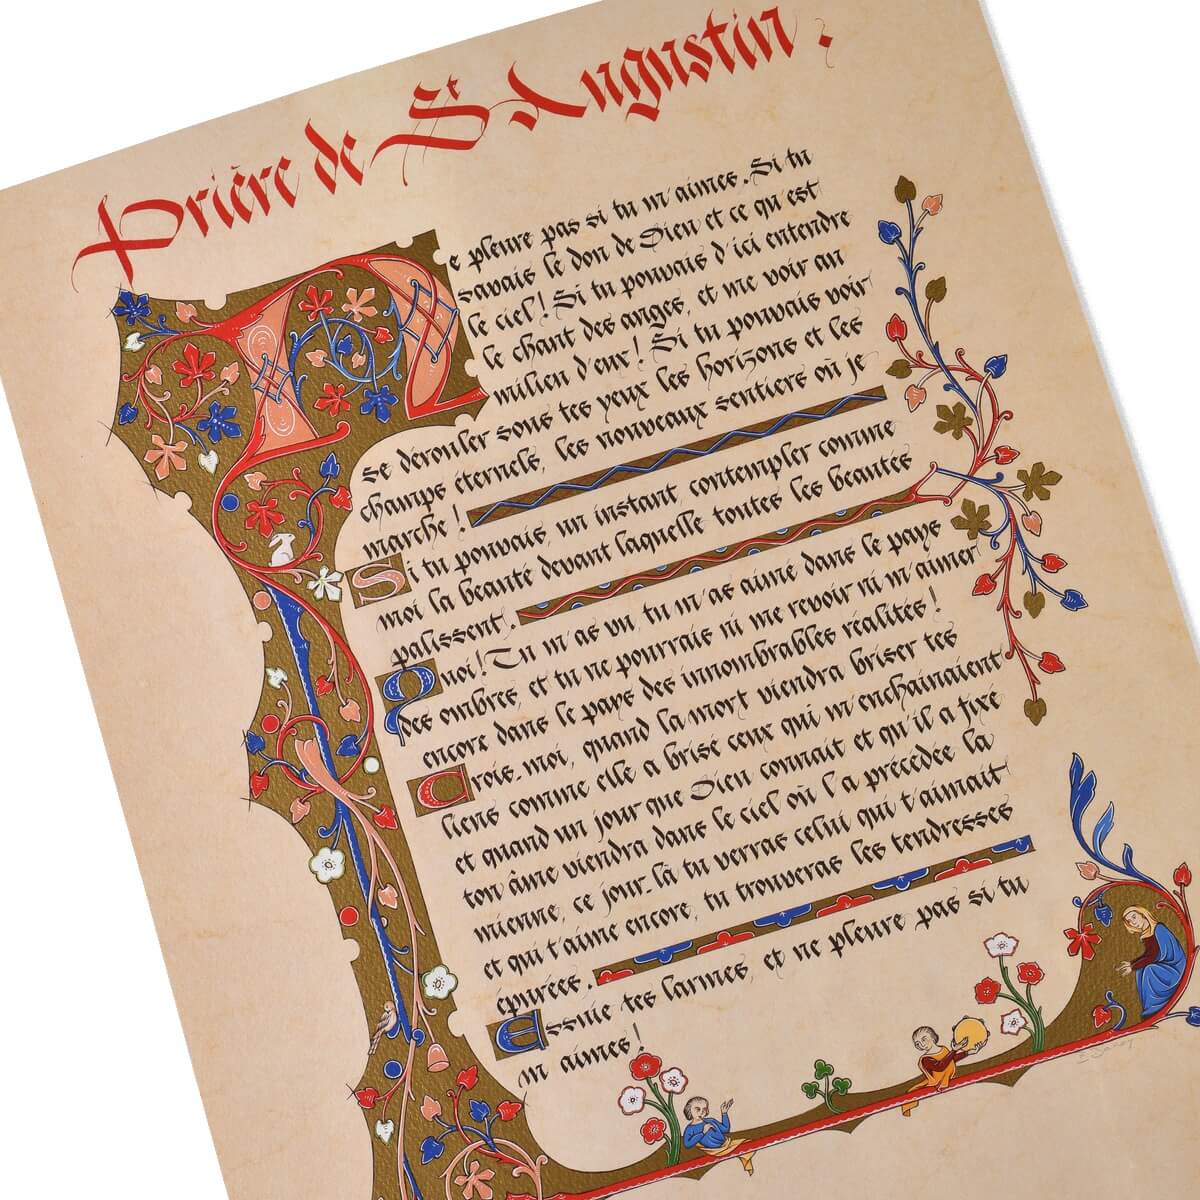 Prière de St Augustin.
Ne pleure pas si tu m'aimes. Si tu
savais le don de Dieu et ce qu'est
le ciel! Si tu pouvais d'ici entendre
le chant des anges, et me voir au
milieu d'eux! Si tu pouvais voir
se dérouler sous tes yeux les horizons et les
champs éternels, les nouveaux sentiers où je
marche!
Si tu pouvais, un instant, contempler comme
moi la beauté devant laquelle toutes les beautés
palissent.
Quoi! Tu m'as vu, tu m'as aimé dans le pays
des ombres, et tu ne pourrais ni me revoir ni m'aimer
encore dans le pays des innombrables réalités!
Crois-moi, quand la mort viendra briser tes
liens comme elle a brisé ceux qui m'enchainaient
et quand un jour que Dieu connait et qu'il a fixé
ton âme viendra dans le ciel où l'a précédée la
mienne, ce jour-là tu verras celui qui t'aimait
et qui t'aime encore, tu trouveras les tendresses
épurées.
Essuie tes larmes, et ne pleure pas si tu
m'aimes!